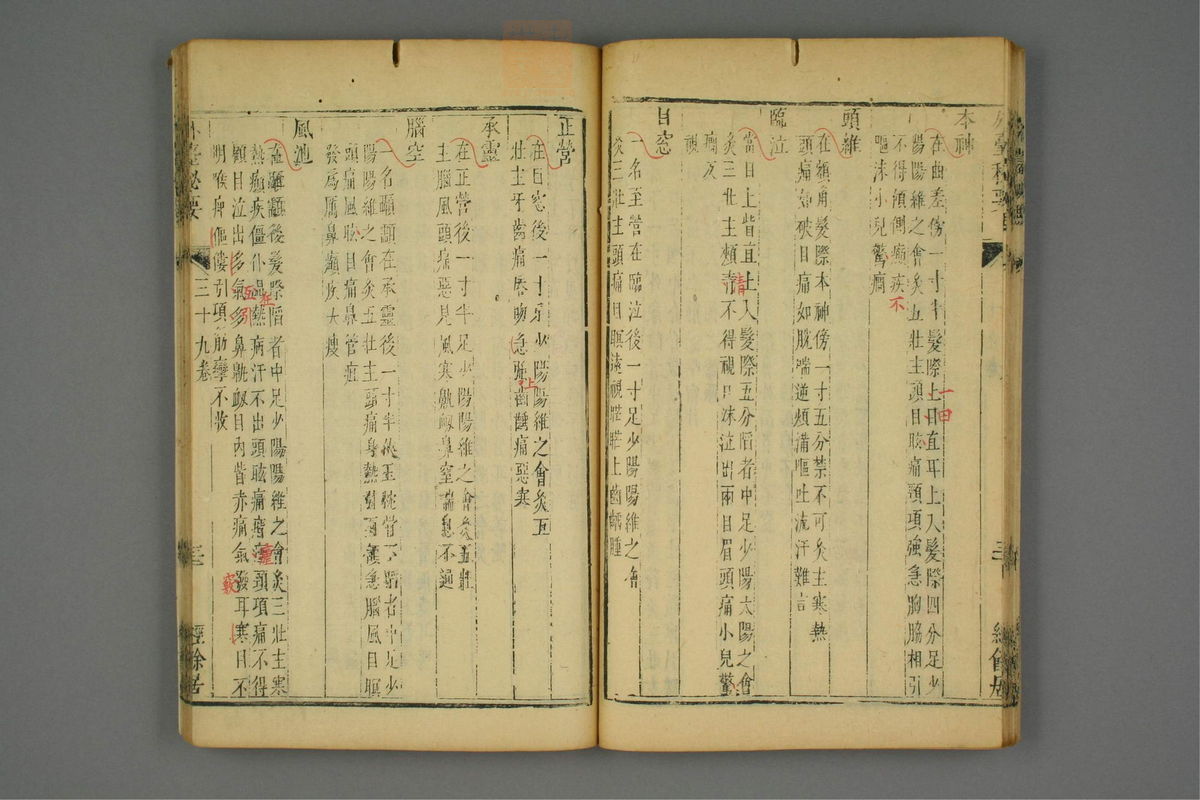 本神
在曲差傍一寸半髮際上曰直耳上入髮際四分足少
陽陽維之會灸五壯主頭目眩痛頸項強急胸脇相引
不得傾側癲疾
嘔沫小兒驚癇
頭維
在額角髮際本神傍一寸五分禁不可灸主寒熱
頭痛如破目痛如脫喘逆煩滿嘔吐流汗難言
臨泣
當目上眥直上入髮際五分陷者中足少陽太陽之會
灸三壯主頰清不得視口沫泣出兩目眉頭痛小兒驚
癇反
視
目窓
一名至營在臨泣後一寸足少陽陽維之會
灸三壯主頭痛目瞑遠視䀮䀮上齒齲腫
正營
在目窓後一寸足少陽陽維之會灸五
壯主牙齒痛唇吻急強齒齲痛惡寒
承靈
在正營後一寸半足少陽陽維之會灸五壯
主腦風頭痛惡見風寒鼽衄鼻窒喘息不通
腦空
一名顳顬在承靈後一寸半俠玉枕骨下陷者中足少
陽陽維之會灸五壯主頭痛身熱引兩頷急腦風目瞑
頭痛風眩目痛鼻管疽
發為厲鼻癲疾大瘦
風池
在顳顬後髮際陷者中足少陽陽維之會灸三壯主寒
熱癲疾僵仆溫熱病汗不出頭眩痛痎瘧頸項痛不得
顧目泣出多氣多鼻鼽衄目內眥赤痛氣發耳寒目不
明喉痺傴僂引項筋攣不收
外臺秘要
三十九卷
三
經餘居